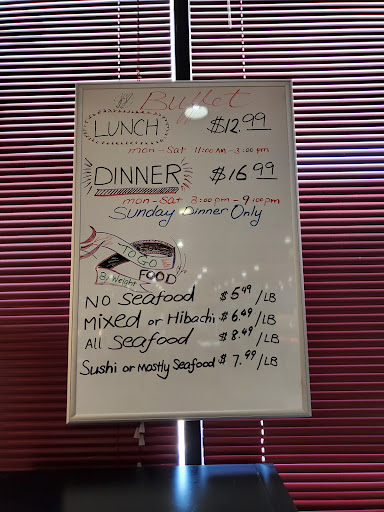 Buffet
LUNCH $12.99
mon - Sat 11:00 AM - 3:00 pm
DINNER $16.99
mon - Sat 3:00 pm - 9:00 pm
Sunday Dinner Only
TO GO
FOOD
By Weight
NO Seafood $5.49/LB
Mixed or Hibachi $6.49/LB
All Seafood $8.49/LB
Sushi or Mostly Seafood $7.99/LB